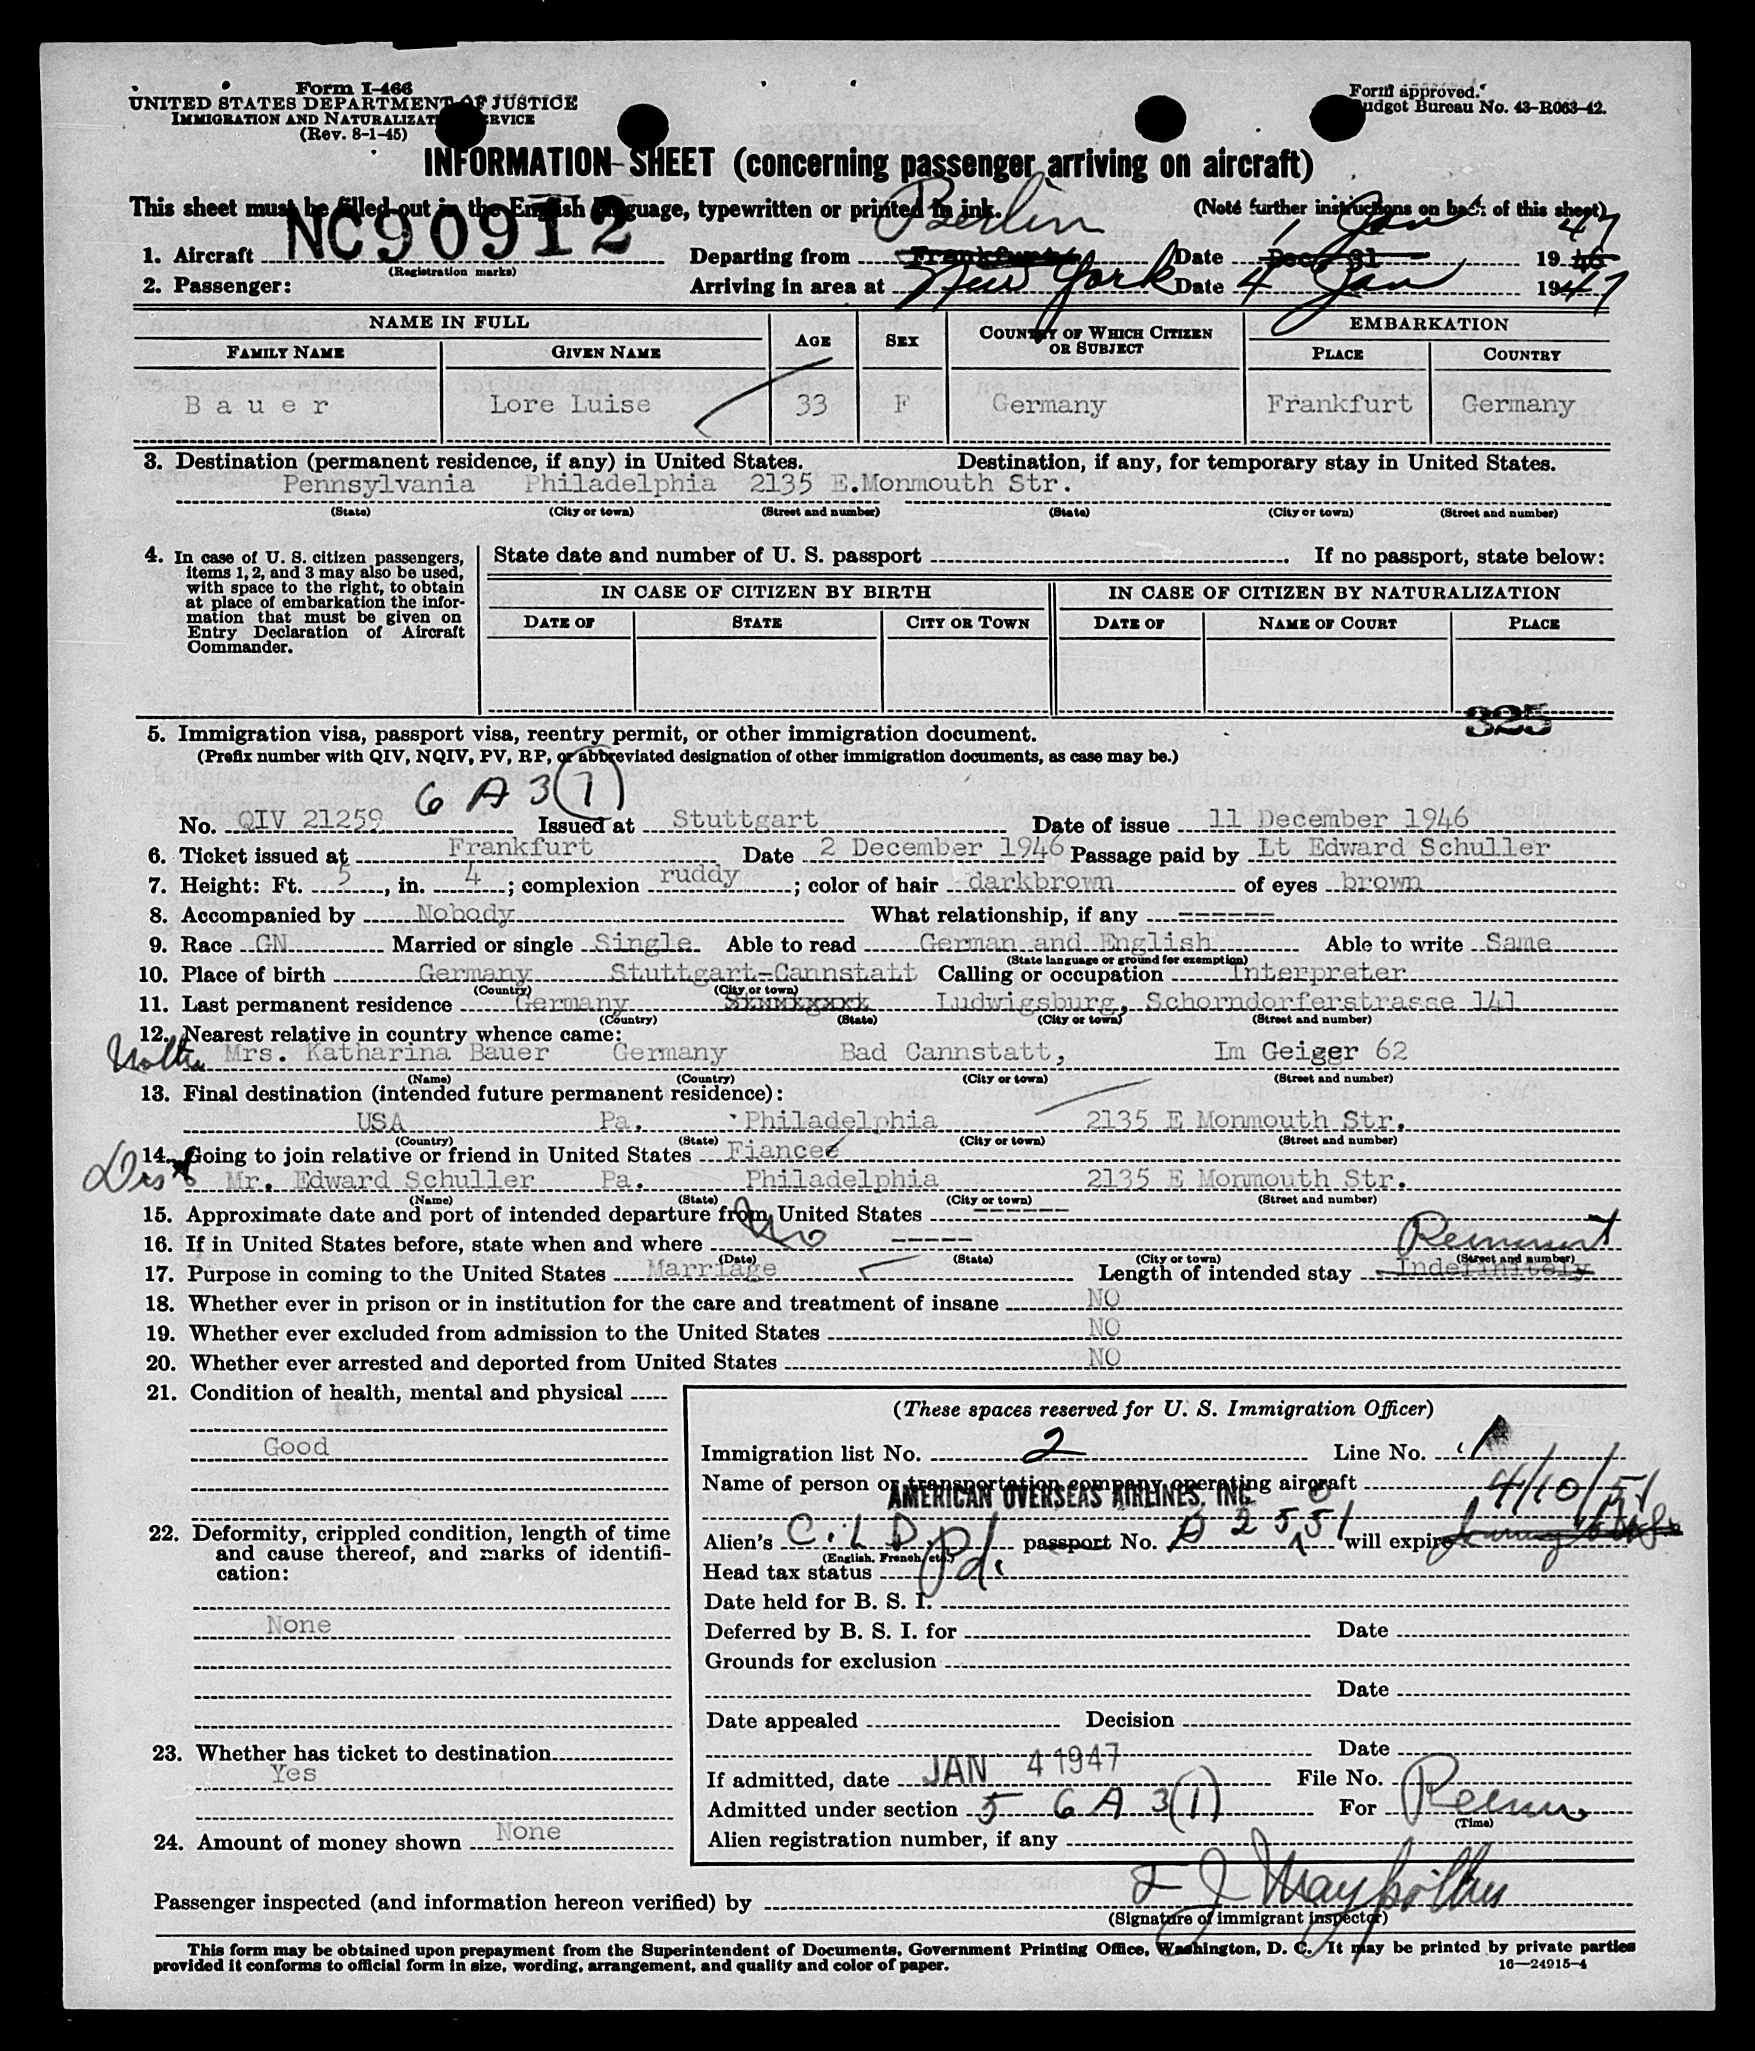 Form I-466
UNITED STATES DEPARTMENT OF JUSTICE
IMMIGRATION AND NATURALIZATION SERVICE
(Rev. 8-1-45)
Form approved.
Budget Bureau No. 43-R063-42.
INFORMATION SHEET (concerning passenger arriving on aircraft)
This sheet must be filled out in the English language, typewritten or printed in ink. (Note further instructions on back of this sheet)
NC90912 Berlin 1 Jan 47
1. Aircraft Departing from Frankfurt Date Dec. 31 1946
(Registration marks)
2. Passenger: Arriving in area at New York Date 4 Jan 1947
NAME IN FULL AGE SEX COUNTRY OF WHICH CITIZEN OR SUBJECT EMBARKATION
FAMILY NAME GIVEN NAME PLACE COUNTRY
Bauer Lore Luise 33 F Germany Frankfurt Germany
3. Destination (permanent residence, if any) in United States. Destination, if any, for temporary stay in United States.
Pennsylvania Philadelphia 2135 E.Monmouth Str.
(State) (City or town) (Street and number) (State) (City or town) (Street and number)
4. In case of U. S. citizen passengers, items 1, 2, and 3 may also be used, with space to the right, to obtain at place of embarkation the information that must be given on Entry Declaration of Aircraft Commander.
State date and number of U. S. passport If no passport, state below:
IN CASE OF CITIZEN BY BIRTH IN CASE OF CITIZEN BY NATURALIZATION
DATE OF STATE CITY OR TOWN DATE OF NAME OF COURT PLACE
325
5. Immigration visa, passport visa, reentry permit, or other immigration document.
(Prefix number with QIV, NQIV, PV, RP, or abbreviated designation of other immigration documents, as case may be.)
6 A 3 (7)
No. QIV 21259 Issued at Stuttgart Date of issue 11 December 1946
6. Ticket issued at Frankfurt Date 2 December 1946 Passage paid by Lt Edward Schuller
7. Height: Ft. 5, in. 4; complexion ruddy; color of hair darkbrown of eyes brown
8. Accompanied by Nobody What relationship, if any ------
9. Race GN Married or single Single Able to read German and English Able to write Same
(State language or ground for exemption)
10. Place of birth Germany Stuttgart-Cannstatt Calling or occupation Interpreter
(Country) (City or town)
11. Last permanent residence Germany Ludwigsburg, Schorndorferstrasse 141
(Country) (State) (City or town) (Street and number)
12. Nearest relative in country whence came:
Mother Mrs. Katharina Bauer Germany Bad Cannstatt, Im Geiger 62
(Name) (Country) (City or town) (Street and number)
13. Final destination (intended future permanent residence):
USA Pa. Philadelphia 2135 E Monmouth Str.
(Country) (State) (City or town) (Street and number)
14. Going to join relative or friend in United States Fiancee
Mr. Edward Schuller Pa. Philadelphia 2135 E Monmouth Str.
(Name) (State) (City or town) (Street and number)
15. Approximate date and port of intended departure from United States ------
16. If in United States before, state when and where No -----
(Date) (State) (City or town) (Street and number)
17. Purpose in coming to the United States Marriage Length of intended stay Indefinitely
18. Whether ever in prison or in institution for the care and treatment of insane NO
19. Whether ever excluded from admission to the United States NO
20. Whether ever arrested and deported from United States NO
21. Condition of health, mental and physical
Good
22. Deformity, crippled condition, length of time and cause thereof, and marks of identification:
None
23. Whether has ticket to destination
Yes
24. Amount of money shown None
(These spaces reserved for U. S. Immigration Officer)
Immigration list No. 2 Line No. 1
Name of person or transportation company operating aircraft
AMERICAN OVERSEAS AIRLINES, INC. 4/10/51
Alien's C.L.D. passport No. will expire
(English, French, etc.)
Head tax status Pd.
Date held for B. S. I.
Deferred by B. S. I. for Date
Grounds for exclusion
Date
Date appealed Decision
Date
If admitted, date JAN 4 1947 File No.
Admitted under section 5 6 A 3 (1) For
(Time)
Alien registration number, if any
Passenger inspected (and information hereon verified) by
(Signature of immigrant inspector)
This form may be obtained upon prepayment from the Superintendent of Documents, Government Printing Office, Washington, D. C. It may be printed by private parties
provided it conforms to official form in size, wording, arrangement, and quality and color of paper. 16—24915-4